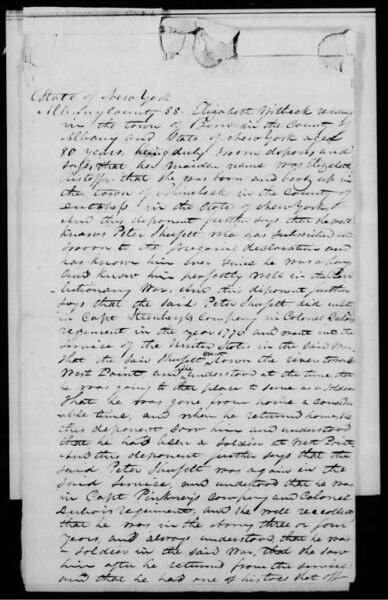 State of New York
Albany County SS. Elizabeth Witbeck residing
in the town of Bern in the County of
Albany and State of New York aged
80 years, being duly sworn deposes and
says, that her maiden name was Elizabeth
that she was born and brot up in
the town of Rhinebeck in the County of
Dutchess in the State of New York,
And this deponent further says that she well
knows Peter Shufelt who has subscribed and
sworn to the foregoing declaration and
has known him ever since he was a boy
and knew him perfectly well in the Rev
olutionary War, And this deponent further
says that the said Peter Shufelt did enlist
in Capt Company in Colonel Dubois
regiment in the year 177 and went into the
service of the United States in the said War
that the said Shufelt went down the river towards
West Point and she understood at the time that
he was going to that place to serve as a soldier
That he was gone from home a consider
able time, and when he returned home, he
this deponent saw him and understood
that he had been a soldier at West Point
And this deponent further says that the
said Peter Shufelt was again in the
said service, and understood that he was
in Capt Pinkney's Company and Colonel
Dubois regiment, and she well recollects
that he was in the Army three or four
years, and always understood that he was
a soldier in the said War, that she saw
him after he returned from the service
and that he had one of his toes shot off